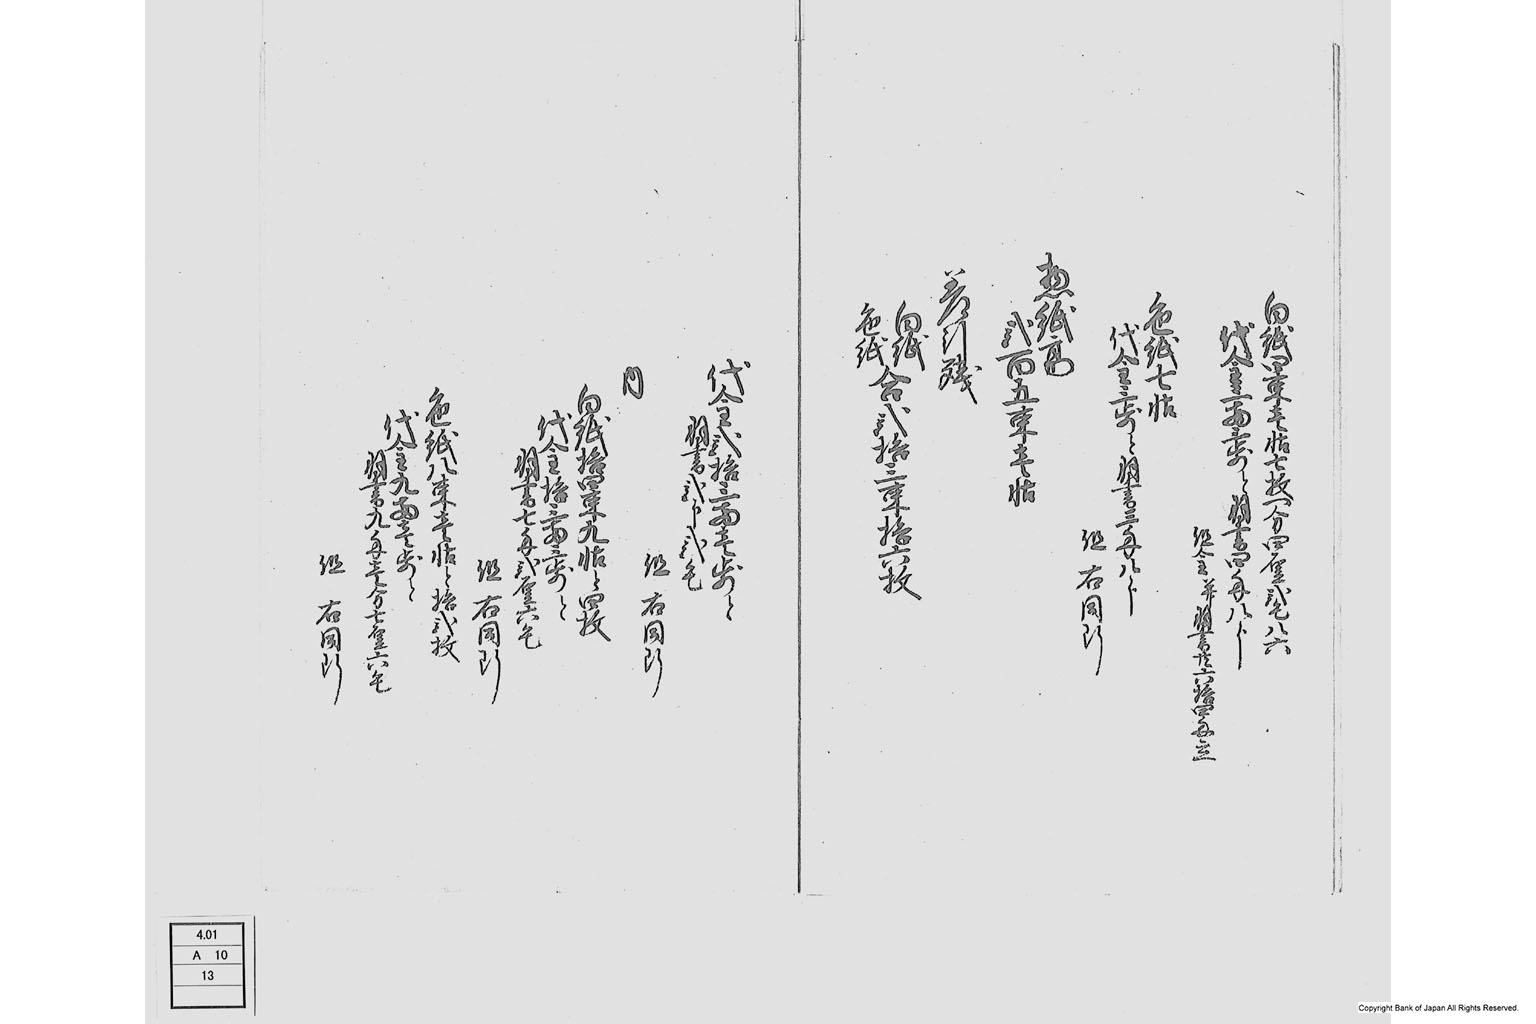 白紙四束壱帖七枚一分四厘弐毛八六
代金壱両壱歩と羽書四匁八分
但金ニ付羽書六拾四匁立
色紙七帖
代金三歩と羽書三匁八分
但右同断
惣紙高
弐百五束壱帖
差引残
白紙
色紙
合弐拾三束拾六枚
代金弐拾三両壱歩と
羽書弐分弐毛
但右同断
内
白紙拾四束九帖と四枚
代金拾三両三歩と
羽書七匁弐厘六毛
但右同断
色紙八束壱帖と拾弐枚
代金九両壱歩と
羽書九匁壱分七厘六毛
但右同断
4.01
A 10
13
Copyright Bank of Japan All Rights Reserved.